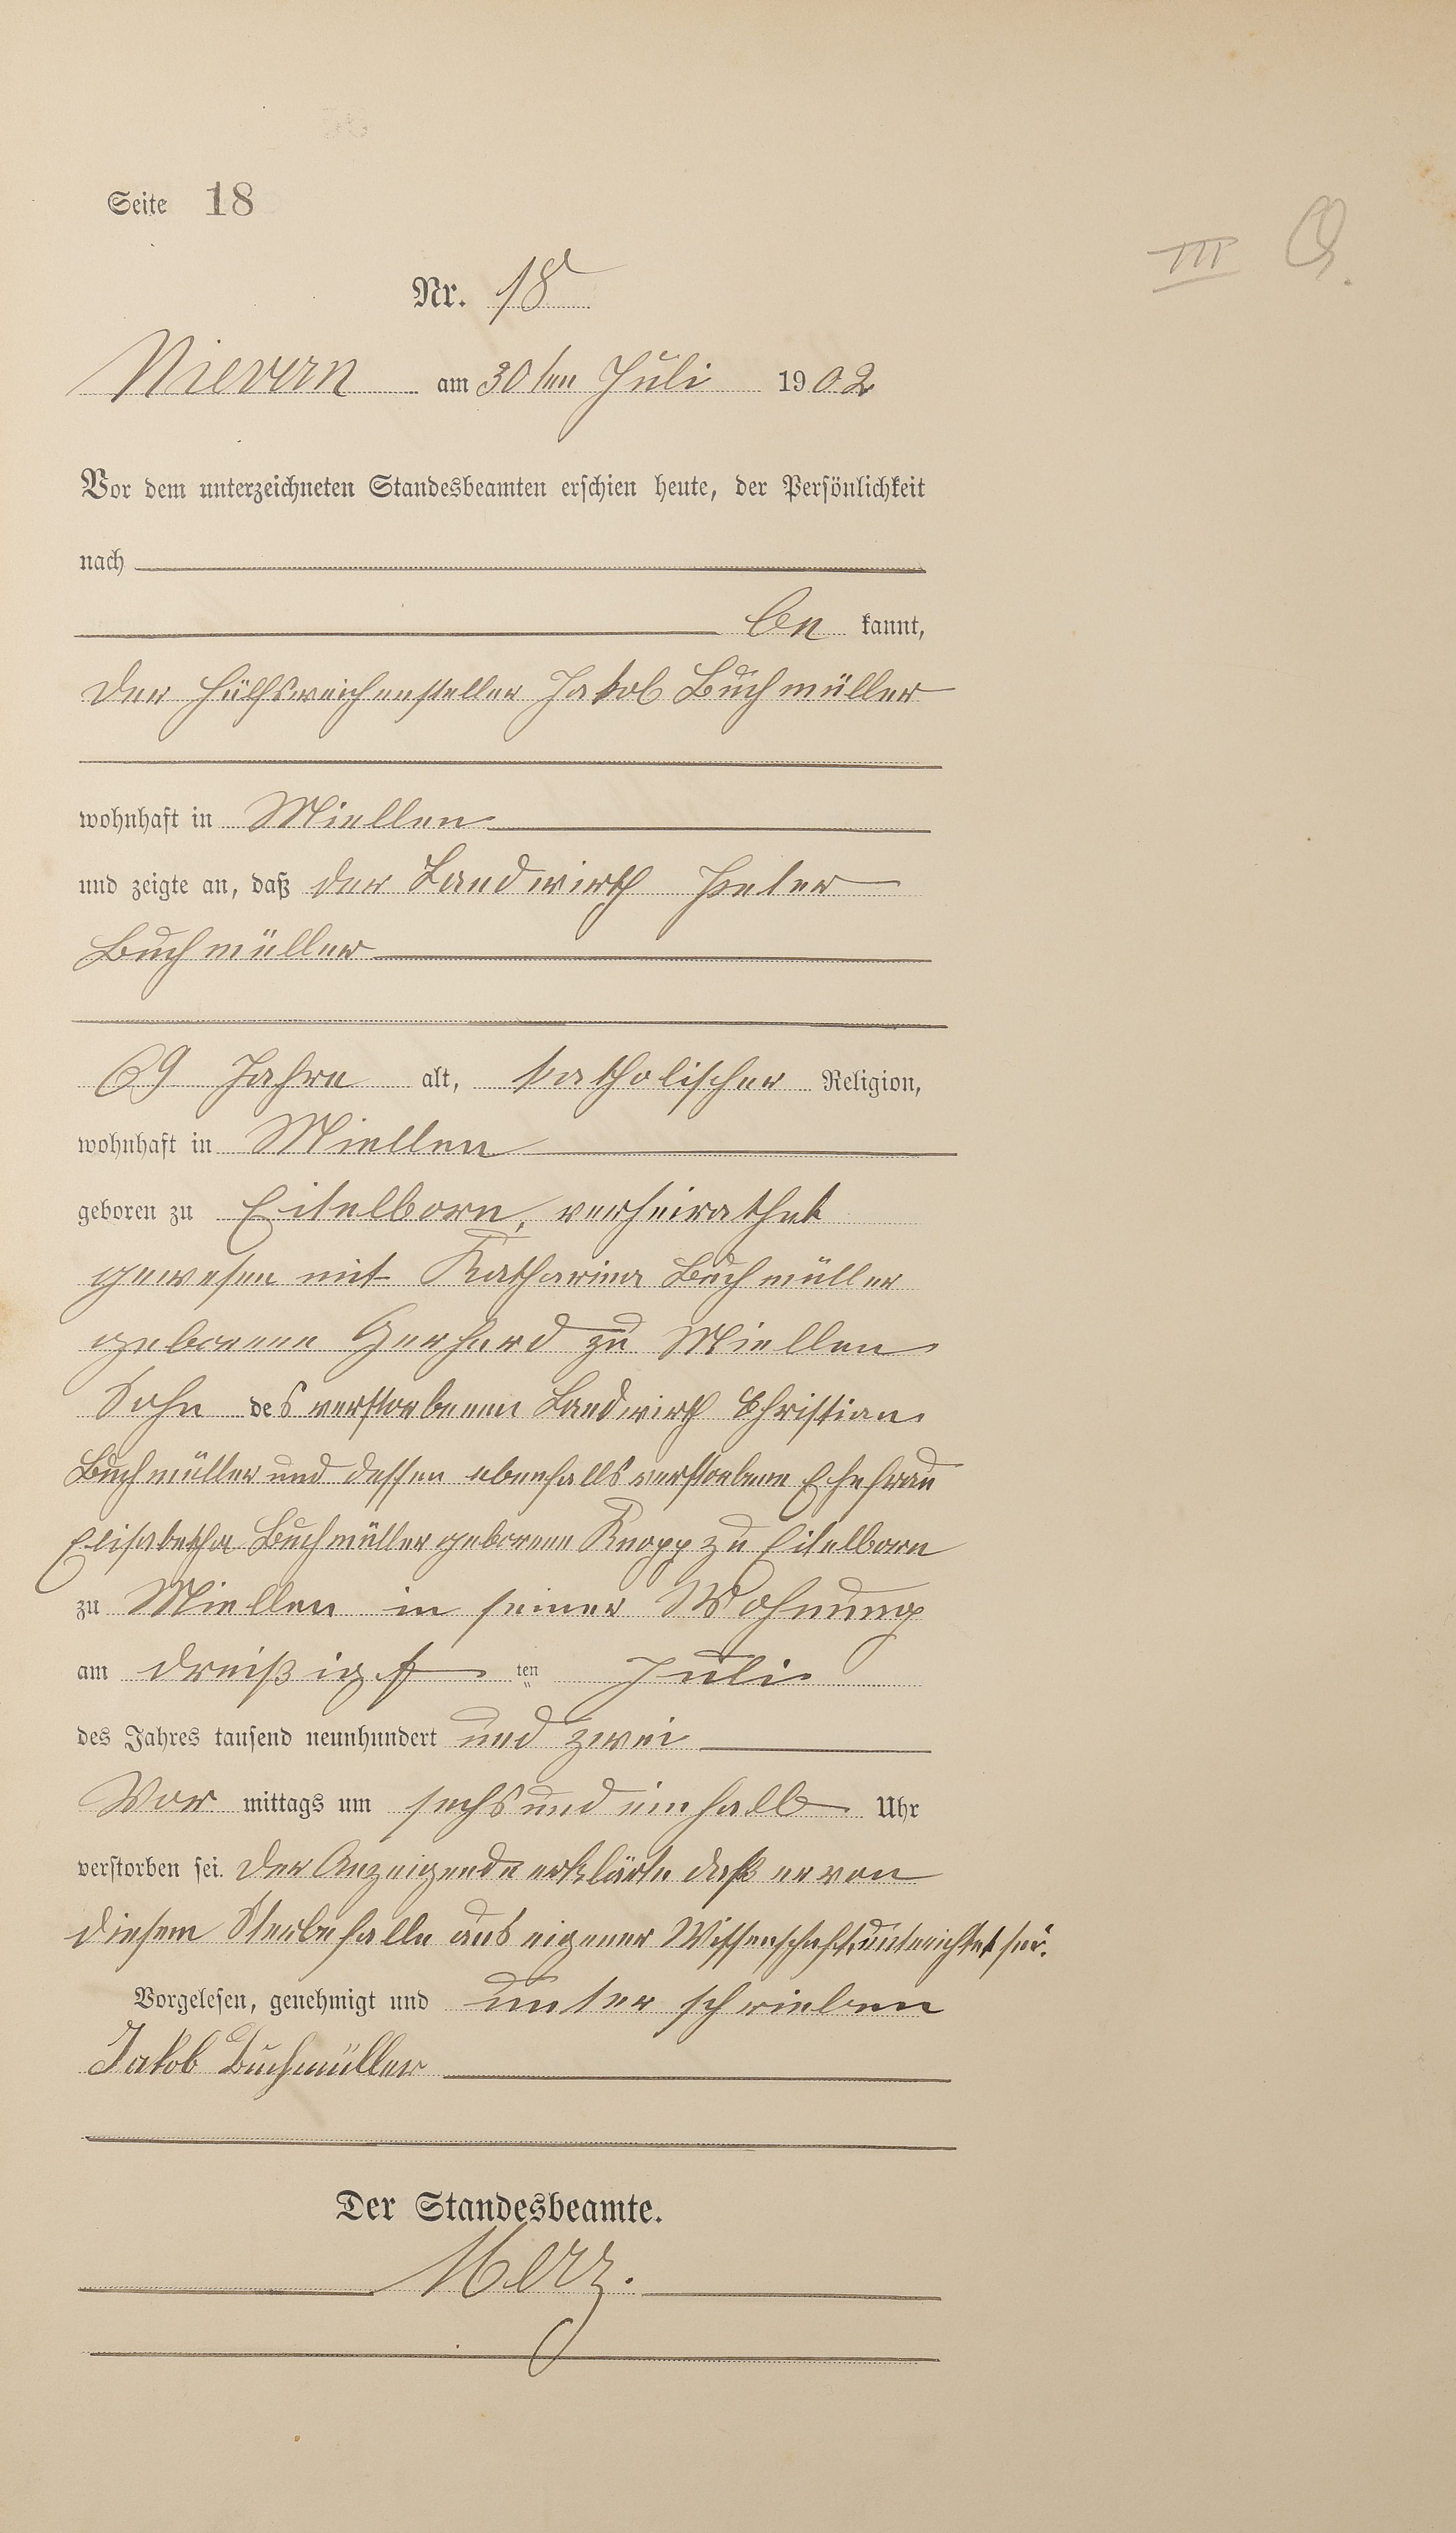 Seite 18
III Q.
Nr. 18
Nievern am 30ten Juli 1902
Vor dem unterzeichneten Standesbeamten erschien heute, der Persönlichkeit
nach
be kannt,
der Hülfsweichensteller Jakob Buchmüller
wohnhaft in Miellen
und zeigte an, daß der Landwirth Peter
Buchmüller
69 Jahre alt, katholischer Religion,
wohnhaft in Miellen
geboren zu Eitelborn, verheirathet
gewesen mit Katharina Buchmüller
geborene Gerhard zu Miellen
Sohn des verstorbenen Landwirth Christian
Buchmüller und dessen ebenfalls verstorbene Ehefrau
Elisabetha Buchmüller geborene Knopp zu Eitelborn
zu Miellen in seiner Wohnung
am dreißigst ten Juli
des Jahres tausend neunhundert und zwei
Vor mittags um sechs und einhalb Uhr
verstorben sei. Der Anzeigende erklärte daß er von
diesem Sterbefalle aus eigener Wissenschaft unterrichtet sei.
Vorgelesen, genehmigt und unterschrieben
Jakob Buchmüller
Der Standesbeamte.
Merz.